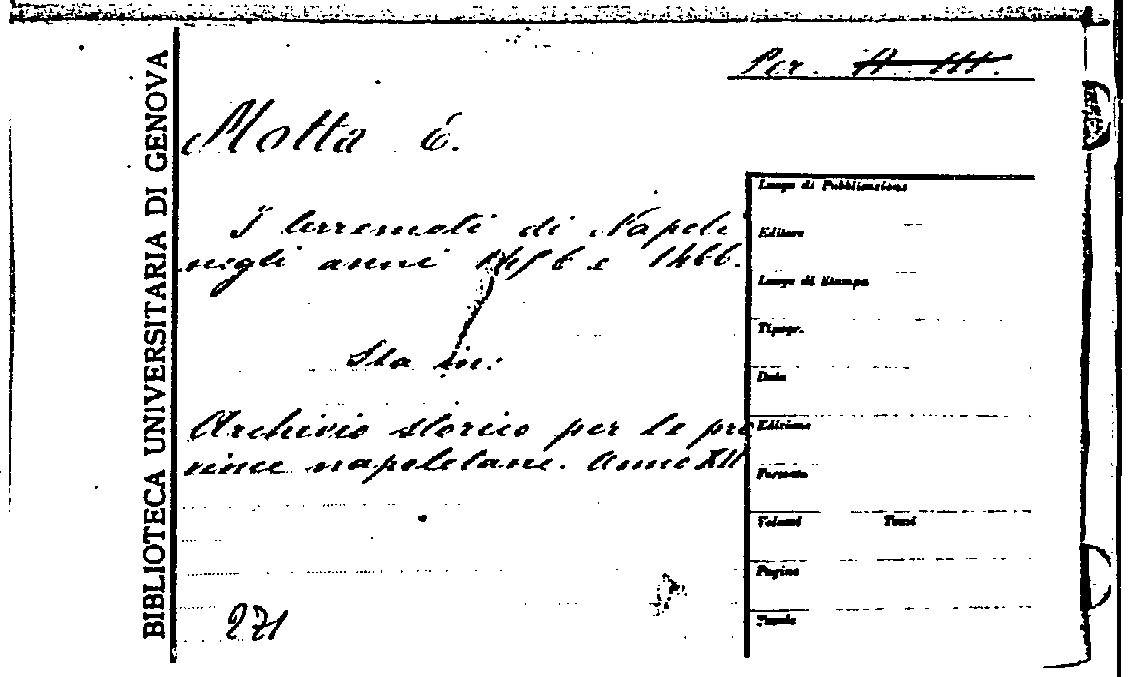 BIBLIOTECA UNIVERSITARIA DI GENOVA
Per. A III.
Motta E.
I terremoti di Napoli
negli anni 1456 e 1466.
Sta in:
Archivio storico per le pro
vince napoletane. Anno XII
271
Luogo di Pubblicazione
Editore
Luogo di Stampa
Tipogr.
Data
Edizione
Formato
Volumi Tomi
Pagine
Tavole